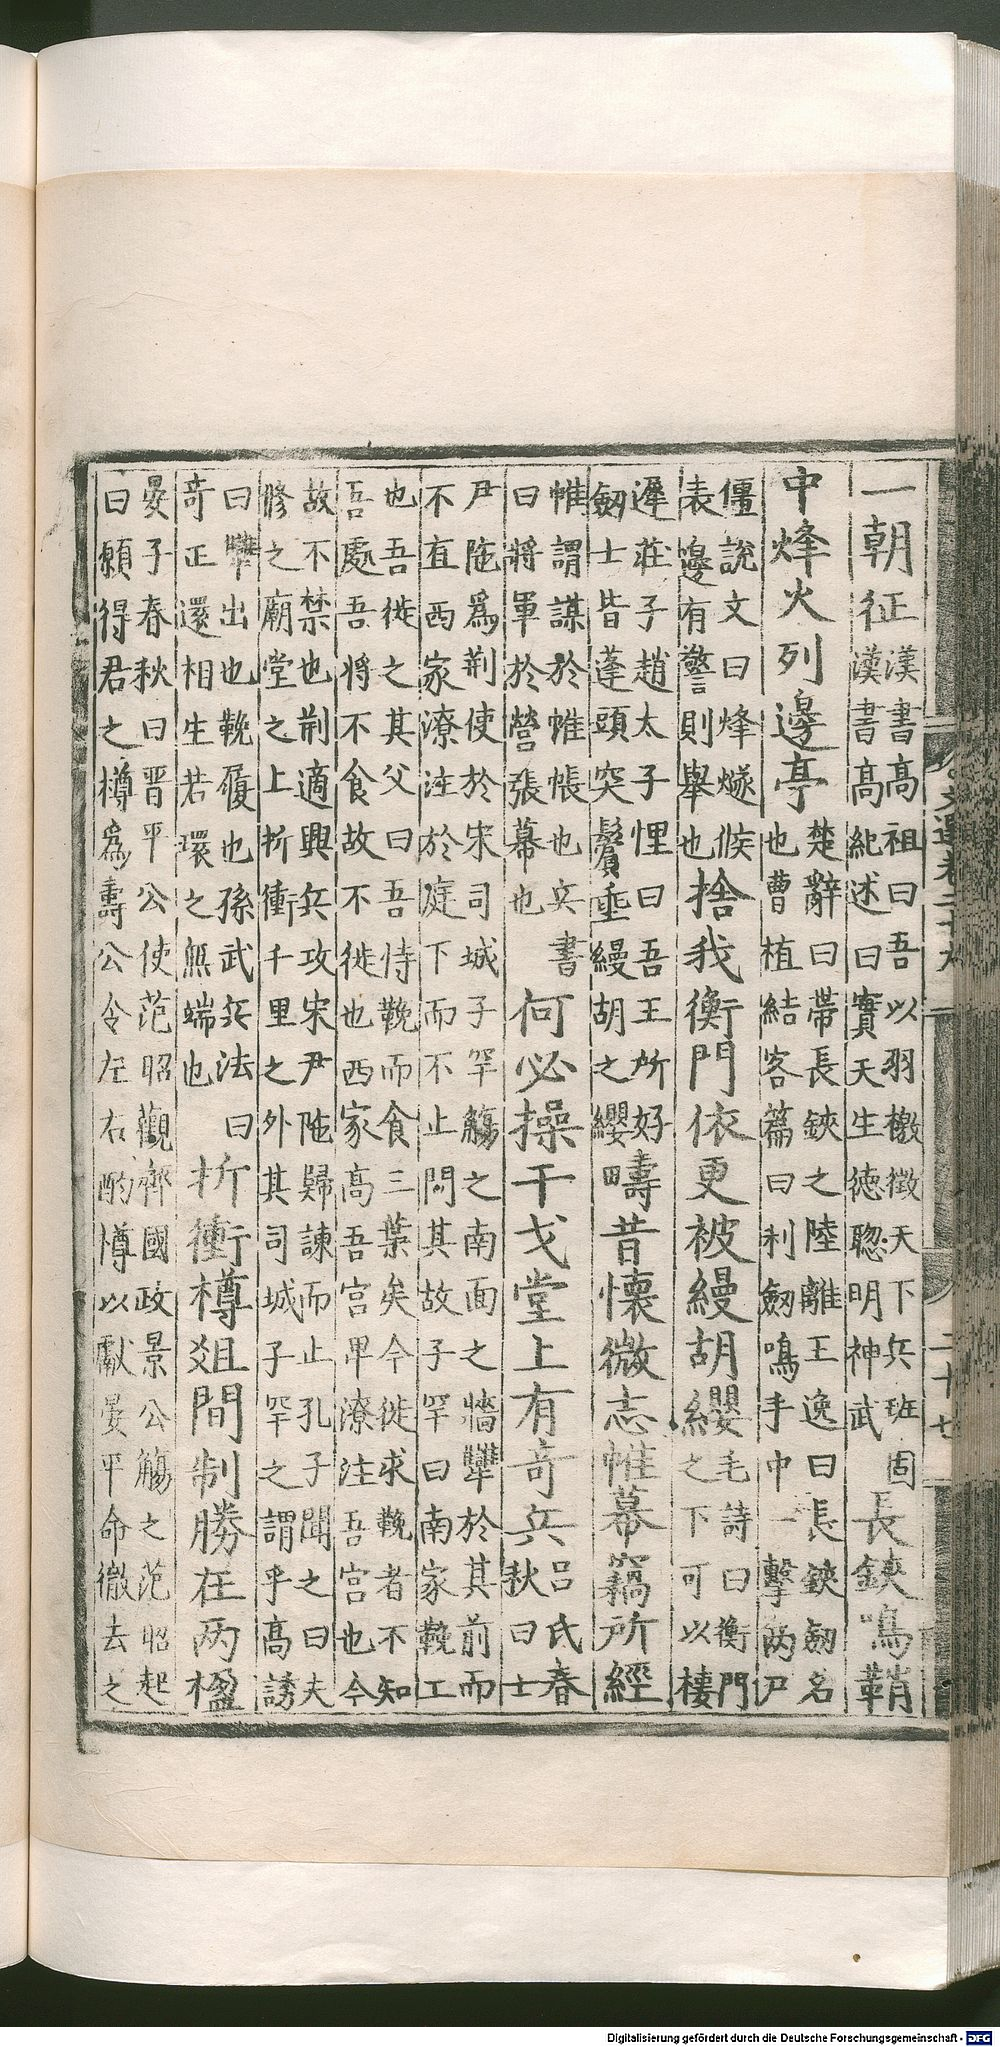 文選卷二十九 二十七
一朝征漢書高祖曰吾以羽檄徵天下兵班固漢書高紀述曰實天生德聦明神武長鋏鳴鞘
中烽火列邊亭楚辭曰帶長鋏之陸離王逸曰長鋏劒名也曹植結客篇曰利劒鳴手中一擊兩尸
僵說文曰烽燧候表邊有警則舉也捨我衡門依更被縵胡纓毛詩曰衡門之下可以棲
遲莊子趙太子悝曰吾王所好劒士皆蓬頭突鬢垂縵胡之纓疇昔懷微志帷幕竊所經
帷謂謀於帷帳也兵書曰將軍於營張幕也何必操干戈堂上有奇兵呂氏春秋曰士
尹陁爲荆使於宋司城子罕觴之南面之牆犨於其前而不直西家潦注於庭下而不止問其故子罕曰南家鞔工
也吾徙之其父曰吾恃鞔而食三葉矣今徙求鞔者不知吾處吾將不食故不徙也西家高吾宫卑潦注吾宫也今
故不禁也荆適興兵攻宋尹陁歸諫而止孔子聞之曰夫修之廟堂之上折衝千里之外其司城子罕之謂乎高誘
曰犨出也鞔履也孫武兵法曰奇正還相生若環之無端也折衝樽爼間制勝在兩楹
晏子春秋曰晋平公使范昭觀齊國政景公觴之范昭起曰願得君之樽爲壽公令左右酌樽以獻晏平命徹去之
Digitalisierung gefördert durch die Deutsche Forschungsgemeinschaft - DFG